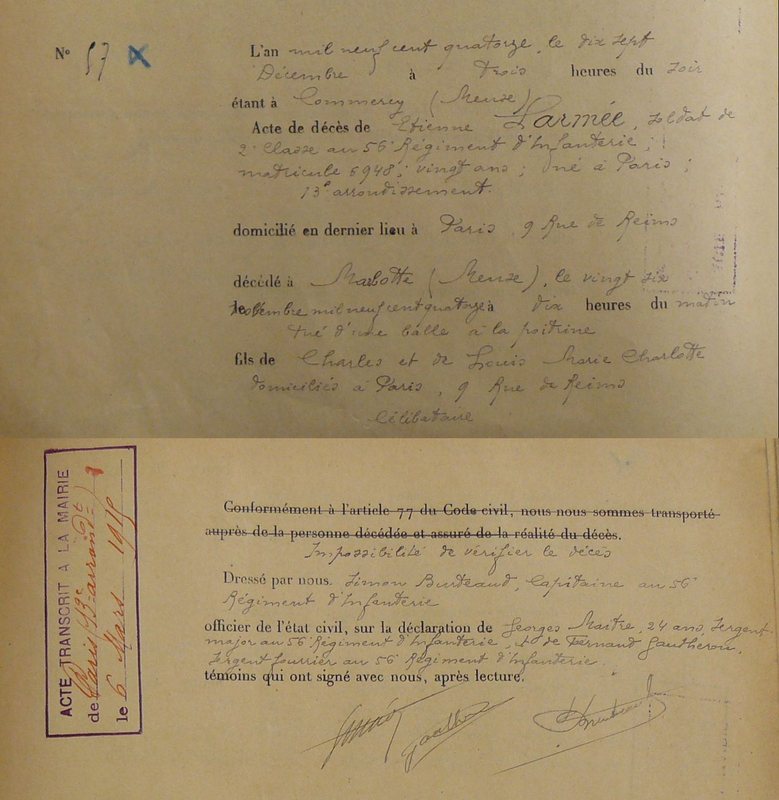 N° 57 L'an mil neuf cent quatorze, le dix sept
Décembre à Trois heures du soir
étant à Commercy (Meuse)
Acte de décès de Etienne Larmée, soldat de
2e classe au 56e Régiment d'Infanterie ;
matricule 6948 ; vingt ans ; né à Paris ;
13e arrondissement.
domicilié en dernier lieu à Paris, 9 Rue de Reims
décédé à Marbotte (Meuse), le vingt six
le Novembre mil neuf cent quatorze à dix heures du matin
tué d'une balle à la poitrine
fils de Charles et de Louis Marie Charlotte
domiciliés à Paris, 9 Rue de Reims
Célibataire
Conformément à l'article 77 du Code civil, nous nous sommes transporté
auprès de la personne décédée et assuré de la réalité du décès.
Impossibilité de vérifier le décès
Dressé par nous. Simon Burteaud, Capitaine au 56
Régiment d'Infanterie
officier de l'état civil, sur la déclaration de Georges Maitre, 24 ans, Sergent
major au 56e Régiment d'Infanterie, et de Fernand Gautheron,
Sergent fourrier au 56e Régiment d'Infanterie.
témoins qui ont signé avec nous, après lecture.
ACTE TRANSCRIT A LA MAIRIE
de Paris (13e arrondt)
le 6 Mars 1915